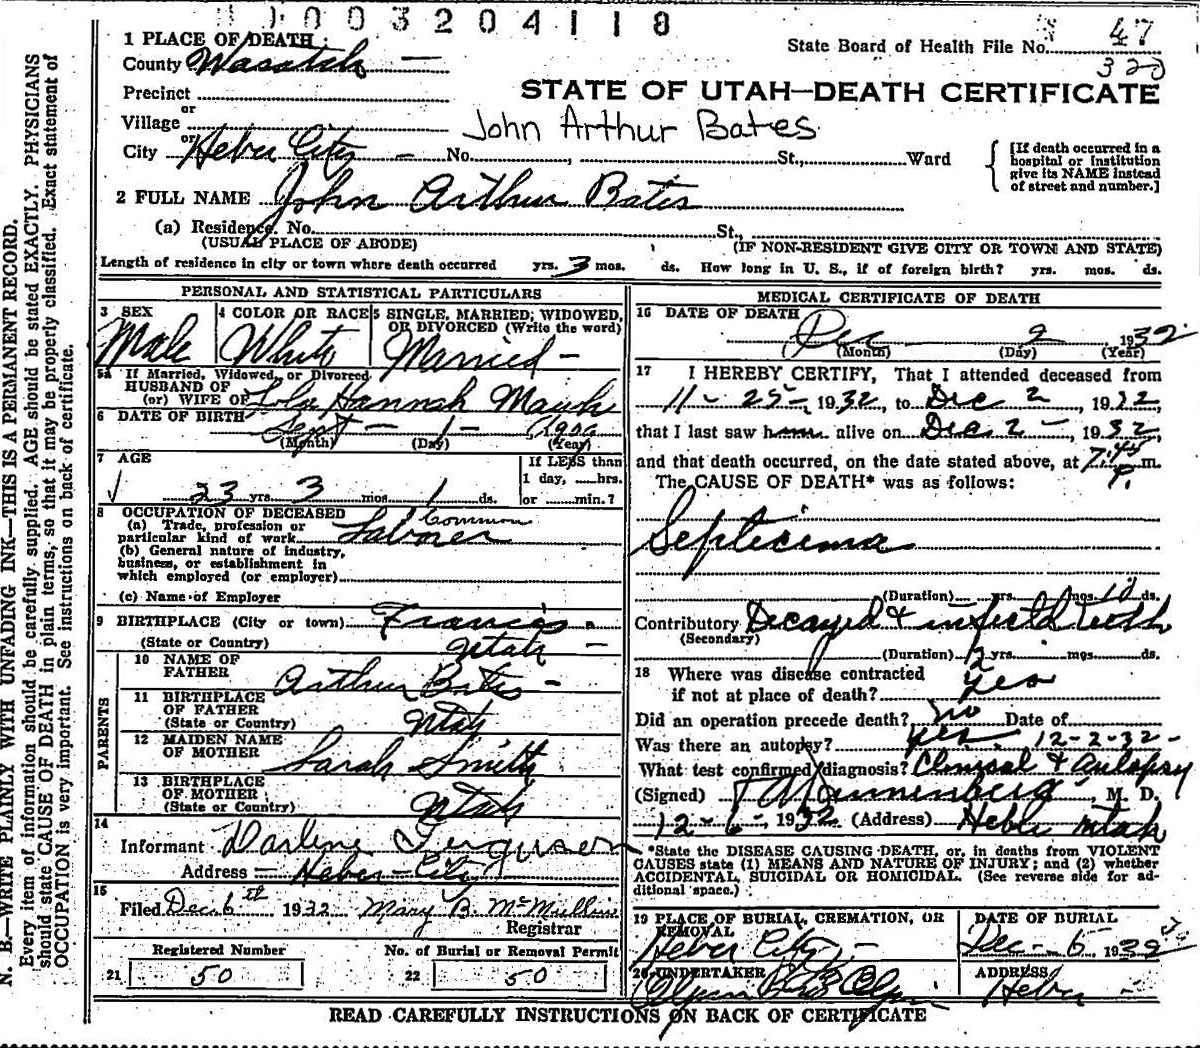 0003204118
1 PLACE OF DEATH:
State Board of Health File No. 47
County Wasatch
320
STATE OF UTAH—DEATH CERTIFICATE
Precinct
or
Village
John Arthur Bates
or
City Heber City No. , St., Ward
[If death occurred in a hospital or institution give its NAME instead of street and number.]
2 FULL NAME John Arthur Bates
(a) Residence. No. St.,
(USUAL PLACE OF ABODE) (IF NON-RESIDENT GIVE CITY OR TOWN AND STATE)
Length of residence in city or town where death occurred yrs. 3 mos. ds. How long in U. S., if of foreign birth? yrs. mos. ds.
PERSONAL AND STATISTICAL PARTICULARS
3 SEX 4 COLOR OR RACE 5 SINGLE, MARRIED, WIDOWED, OR DIVORCED (Write the word)
Male White Married
5A If Married, Widowed, or Divorced
HUSBAND OF
(or) WIFE OF Hannah
6 DATE OF BIRTH Sept - 1 - 1909
(Month) (Day) (Year)
7 AGE
If LESS than
1 day, hrs.
23 yrs. 3 mos. 1 ds. or min.?
8 OCCUPATION OF DECEASED
(a) Trade, profession or
particular kind of work Common Laborer
(b) General nature of industry,
business, or establishment in
which employed (or employer)
(c) Name of Employer
9 BIRTHPLACE (City or town) Francis
(State or Country) Utah
PARENTS
10 NAME OF
FATHER Arthur Bates
11 BIRTHPLACE
OF FATHER
(State or Country) Utah
12 MAIDEN NAME
OF MOTHER Sarah Smith
13 BIRTHPLACE
OF MOTHER
(State or Country) Utah
14
Informant Darlene Ferguson
Address Heber City
15
Filed Dec. 6th 1932 Mary B. McMullin
Registrar
Registered Number No. of Burial or Removal Permit
21 50 22 50
MEDICAL CERTIFICATE OF DEATH
16 DATE OF DEATH
Dec 2 1932
(Month) (Day) (Year)
17 I HEREBY CERTIFY, That I attended deceased from
11 - 25 -, 1932, to Dec 2, 1932,
that I last saw him alive on Dec. 2 -, 1932,
and that death occurred, on the date stated above, at 7:45 P. m.
The CAUSE OF DEATH* was as follows:
Septicima
(Duration) yrs. mos. 10 ds.
Contributory Decayed & infected teeth
(Secondary)
(Duration) 2 yrs. mos. ds.
18 Where was disease contracted
if not at place of death? yes
Did an operation precede death? No Date of
Was there an autopsy? yes 12-2-32-
What test confirmed diagnosis? Clinical & autopsy
(Signed) , M. D.
12-6-, 1932 (Address) Heber Utah
*State the DISEASE CAUSING DEATH, or, in deaths from VIOLENT
CAUSES state (1) MEANS AND NATURE OF INJURY; and (2) whether
ACCIDENTAL, SUICIDAL OR HOMICIDAL. (See reverse side for additional space.)
19 PLACE OF BURIAL, CREMATION, OR REMOVAL DATE OF BURIAL
Heber City Dec - 5 1932
20 UNDERTAKER ADDRESS
Heber
READ CAREFULLY INSTRUCTIONS ON BACK OF CERTIFICATE
N. B.—WRITE PLAINLY WITH UNFADING INK—THIS IS A PERMANENT RECORD.
Every item of information should be carefully supplied. AGE should be stated EXACTLY. PHYSICIANS
should state CAUSE OF DEATH in plain terms, so that it may be properly classified. Exact statement of
OCCUPATION is very important. See instructions on back of certificate.